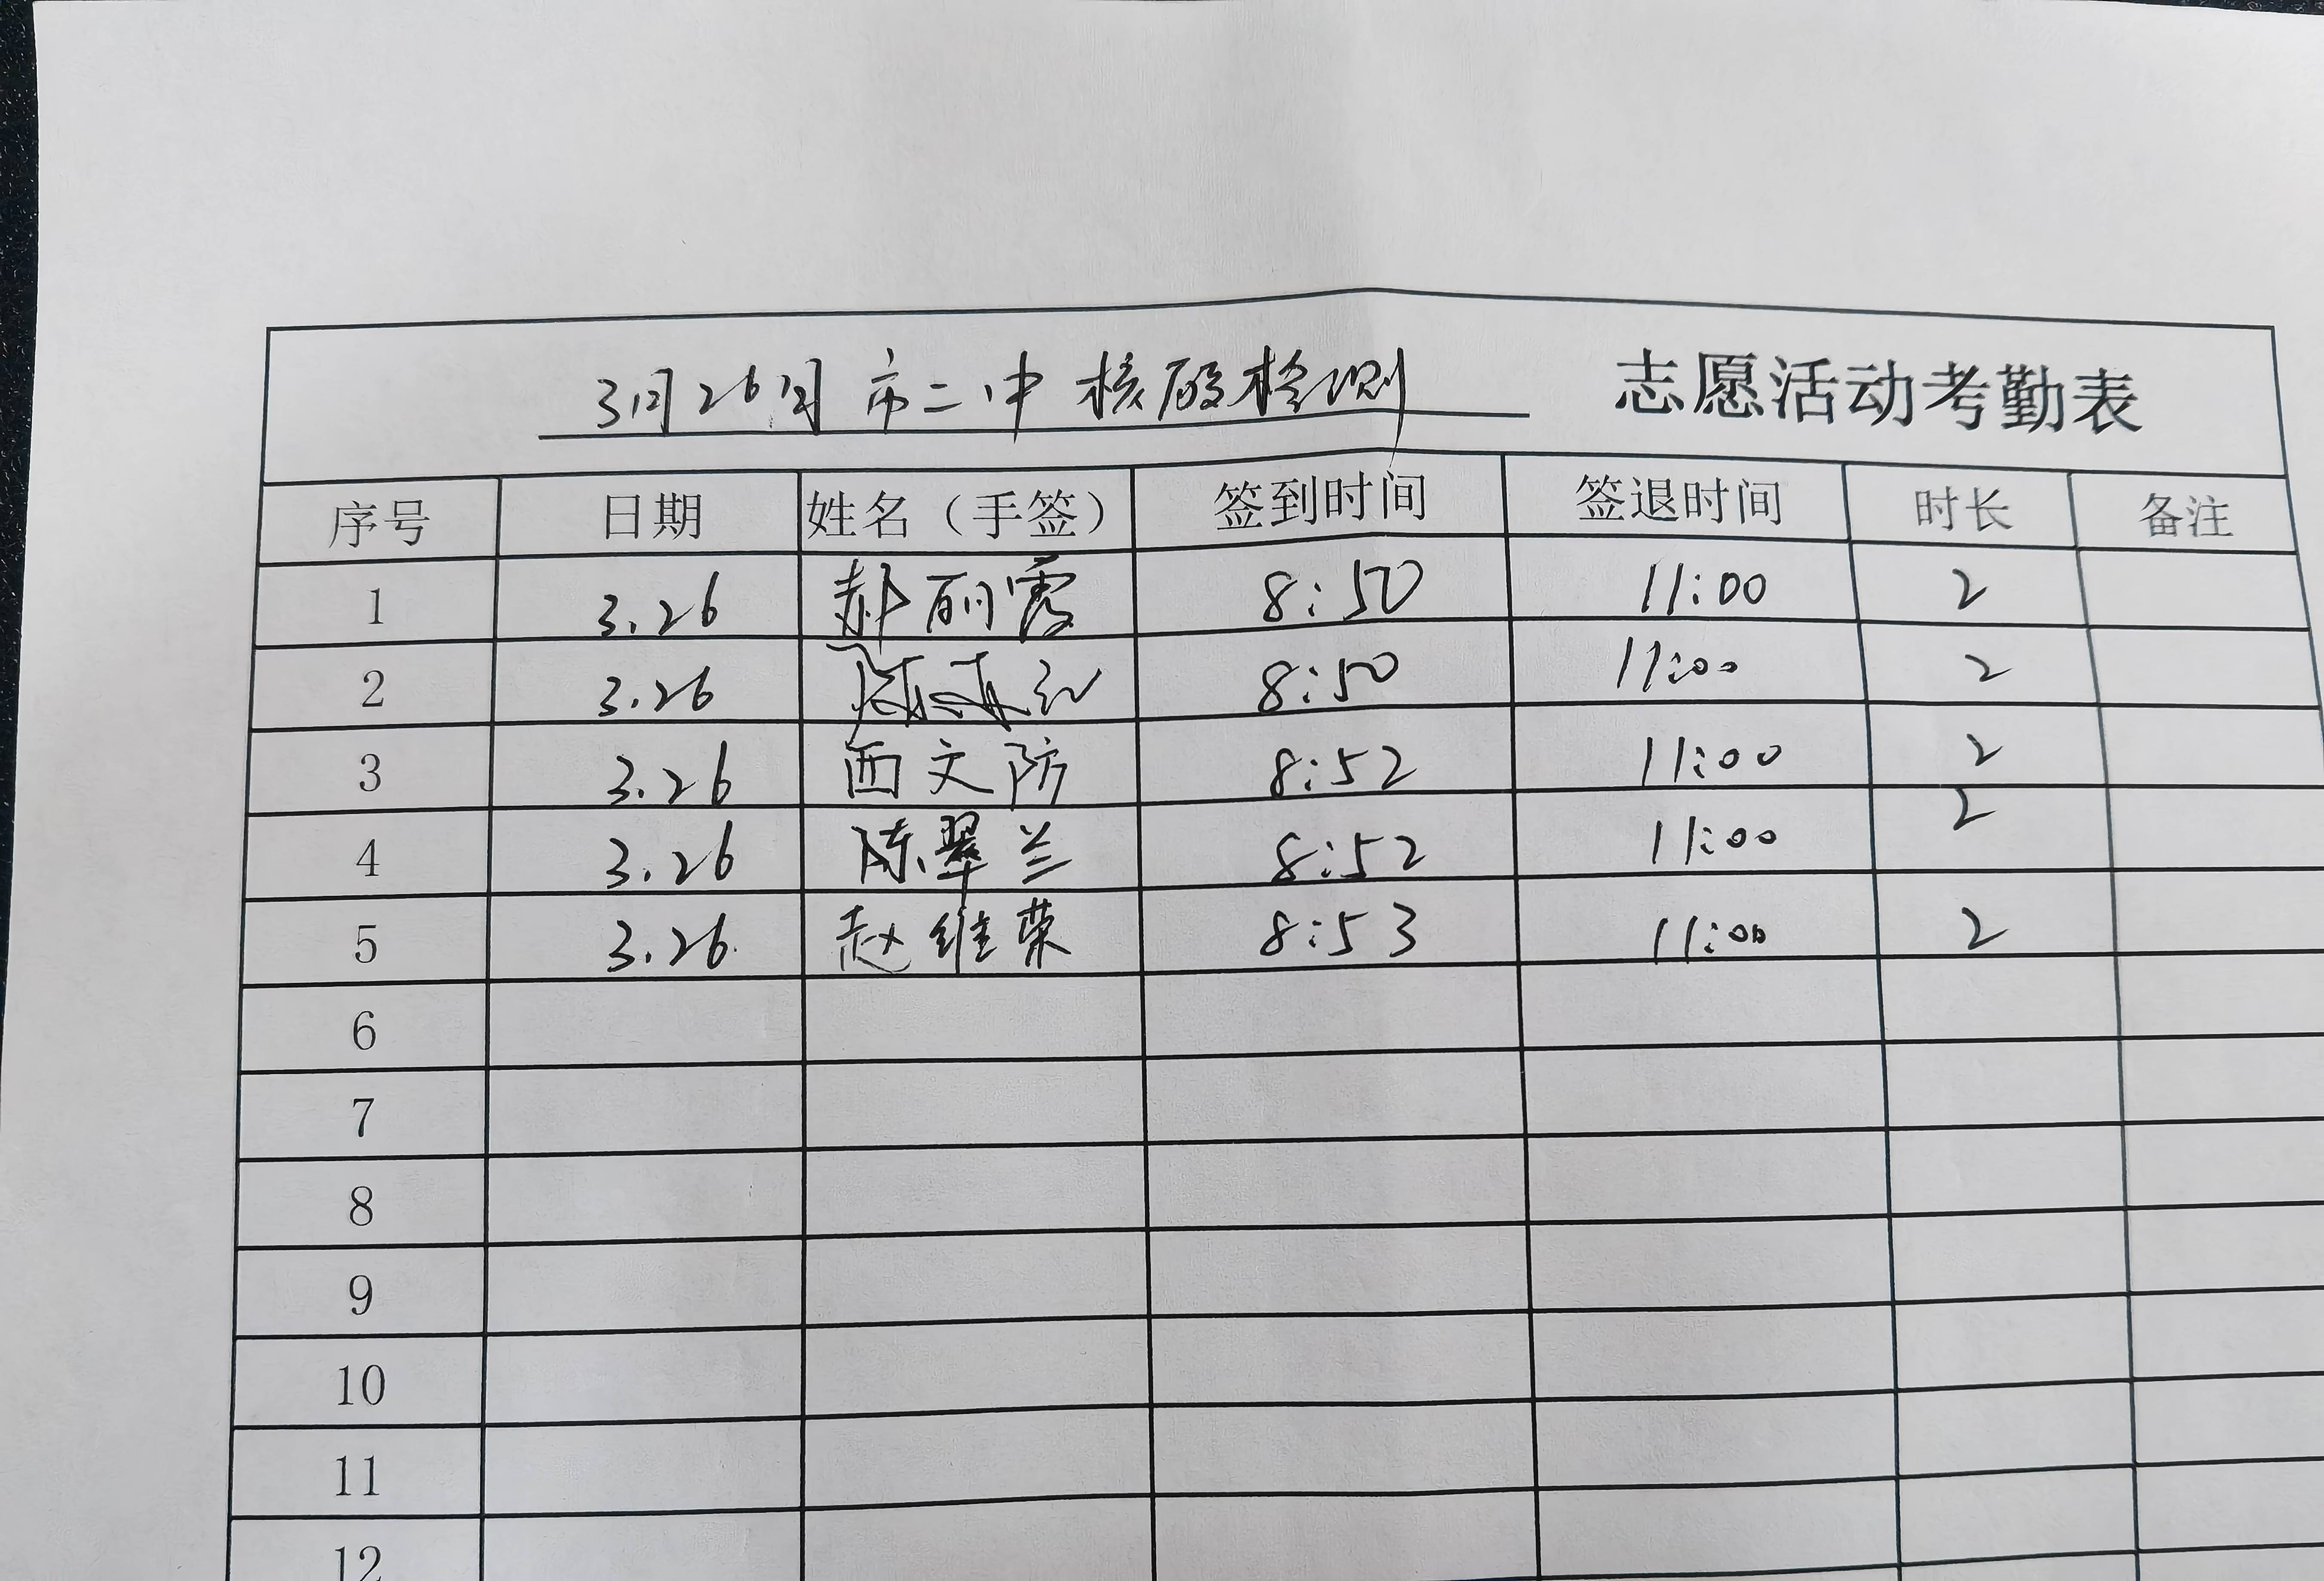 3月26日 市二中 核酸检测 志愿活动考勤表
序号 日期 姓名（手签） 签到时间 签退时间 时长 备注
1 3.26 郝丽霞 8:50 11:00 2
2 3.26 8:50 11:00 2
3 3.26 西文防 8:52 11:00 2
4 3.26 陈翠兰 8:52 11:00 2
5 3.26 赵维荣 8:53 11:00 2
6
7
8
9
10
11
12